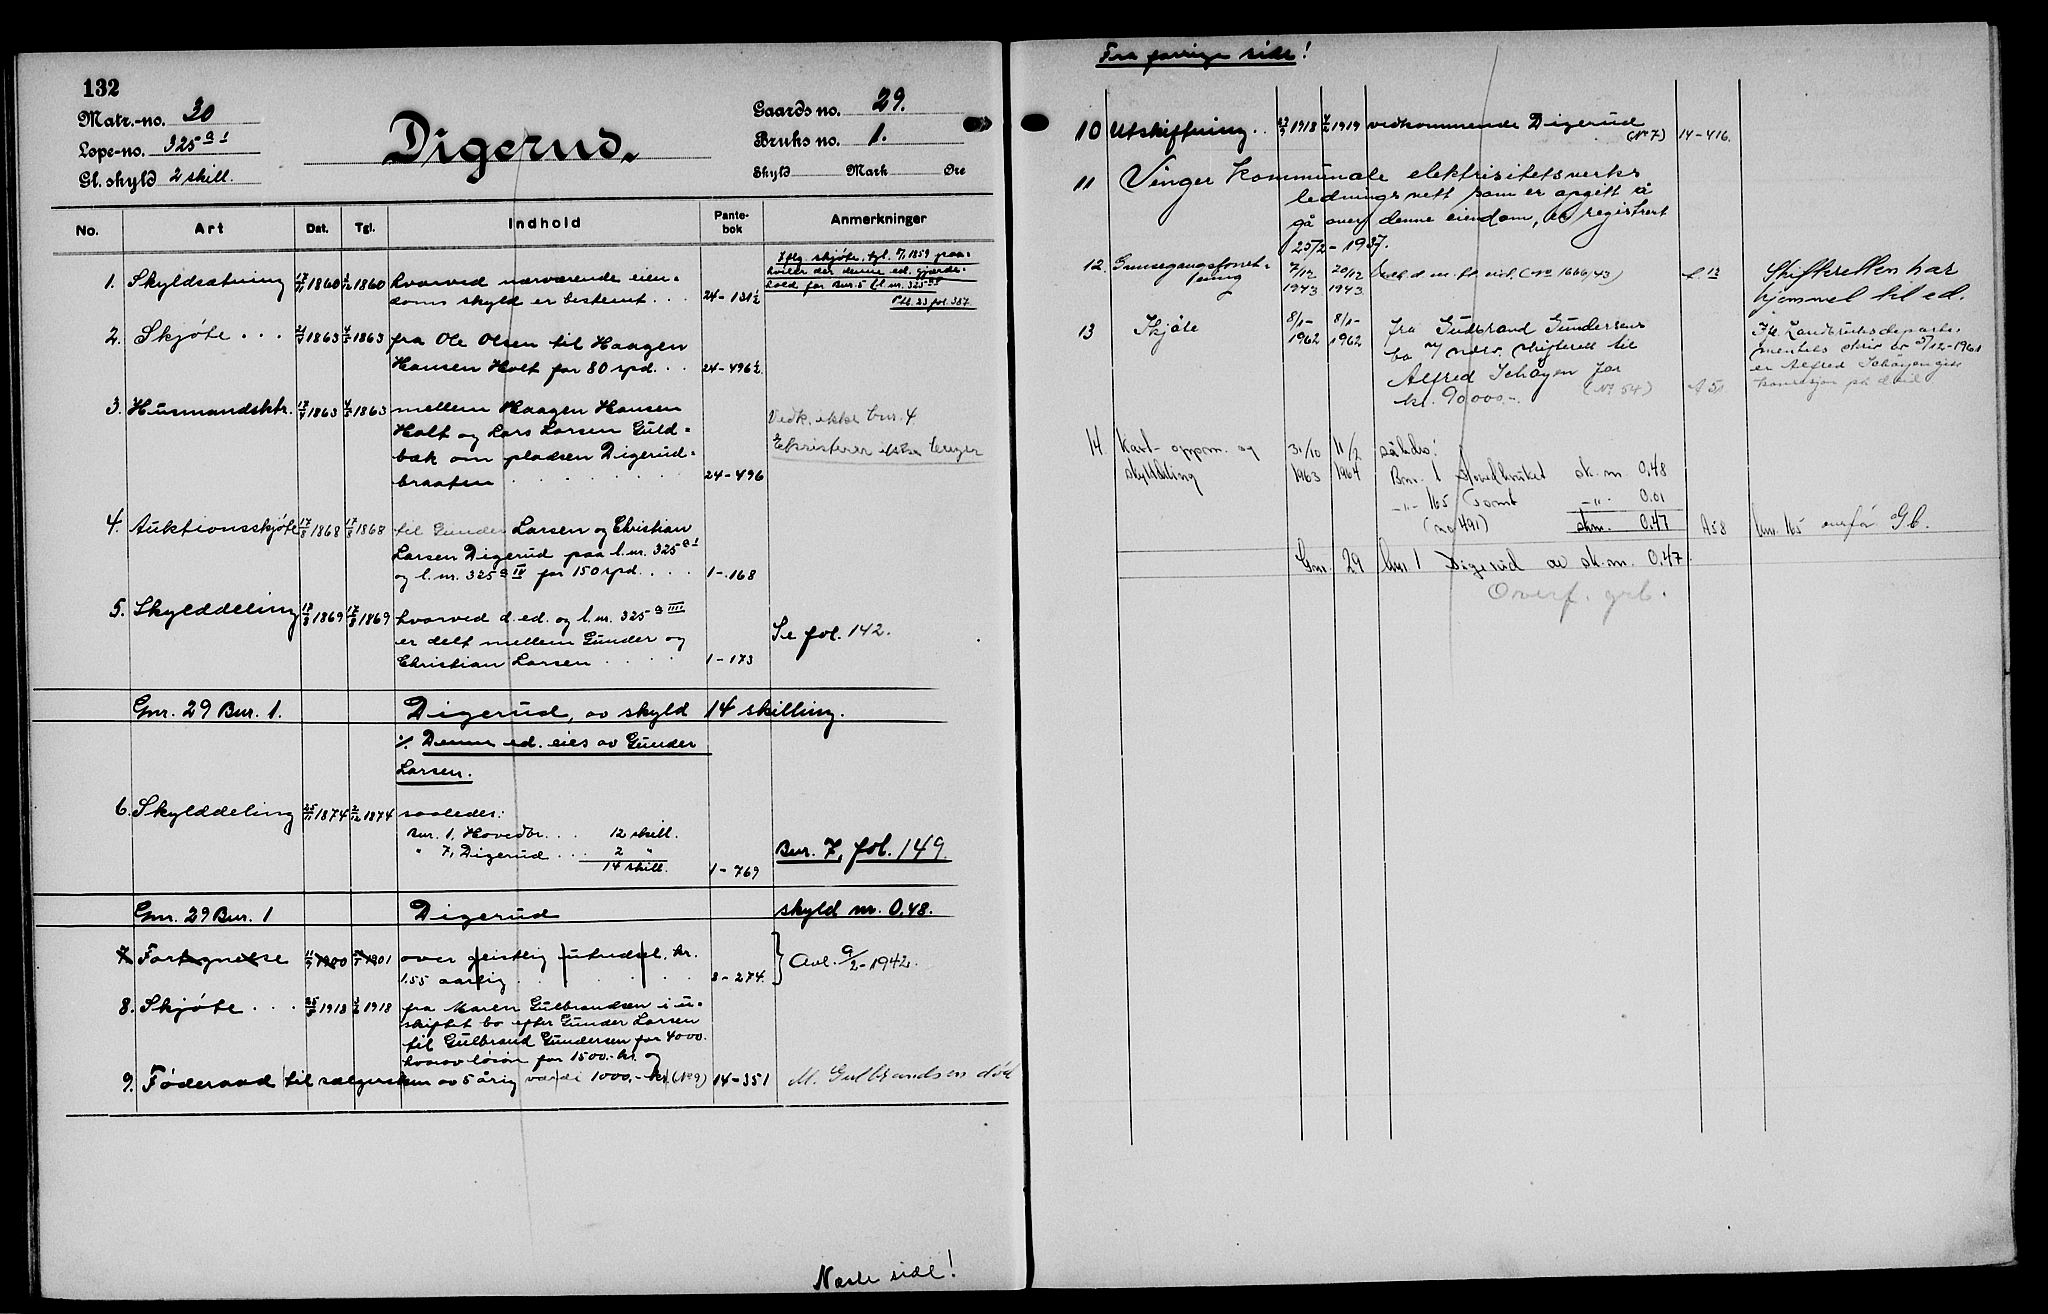 132
Matr.-no. 30
Løpe-no. 325 a I
Gl. skyld 2 skill.
Digerud.
Gaards no. 29.
Bruks no. 1.
Skyld Mark Øre
No. Art Dat. Tgl. Indhold Pante-bok Anmerkninger
Iflg. skjøte, tgl. 1859 paa-
hviler der denne ed. gjærde-
hold for Bnr. 5 (l. nr. 325
Ptb. 23 fol. 357.
1. Skyldsætning 1860 1860 hvorved nærværende eien-
doms skyld er bestemt . . . 24-131½
2. Skjøte . . . 1863 1863 fra Ole Olsen til Haagen
Hansen Holt for 80 spd. . . 24-496½
3. Husmandsktr. 1863 1863 mellem Haagen Hansen
Holt og Lars Larsen Guld- Vedk. ikke bnr. 4
bæk om pladsen Digerud- Eksisterer ikke lenger
braaten . . . . . . . . 24-496
4. Auktionsskjøte 17/8 1868 17/8 1868 til Gunder Larsen og Christian
Larsen Digerud paa l. nr. 325 a I
og l. nr. 325 a IV for 150 spd. . . . . 1-168
5. Skylddeling 1869 1869 hvorved d. ed. og l. nr. 325 a IIII
er delt mellem Gunder og Se fol. 142.
Christian Larsen . . . . . 1-173
Gnr. 29 Bnr. 1. Digerud, av skyld 14 skilling.
./. Denne ed. eies av Gunder
Larsen.
6. Skylddeling 25/11 1874 2/12 1874 saaledes:
Bnr. 1, Hovedbr. . . . 12 skill.
" 7, Digerud . . . 2 "
14 skill. 1-769 Bnr. 7, fol. 149.
Gnr. 29 Bnr. 1 Digerud skyld mr. 0.48.
7. Fortegnelse 1900 1901 over geistlig utredsel, kr.
1.55 aarlig . . . . 8-274. Avl. 9/2-1942.
8. Skjøte . . . 1918 1918 fra Maren Gulbrandsen i u-
skiftet bo efter Gunder Larsen
til Gulbrand Gundersen for 4000.
hvorav løsøre for 1500.- kr. og
9. Føderaad til sælgersken av 5 årig værdi 1000.- kr. (No 9) 14-351 M. Gulbrandsen død
Næste side!
Fra forrige side!
10 Utskiftning . . 1918 1919 vedkommende Digerud
(No 7) 14-416.
11 Vinger kommunale elektrisitetsverks
ledningsnett som er opgitt å
gå over denne eiendom, er registrert
25/2-1937.
12. Grensegangsforret- 7/12 20/12 (No 1666/43) L. 12 Skifteretten har
ning 1943 1943 hjemmel til ed.
13 Skjøte 8/1- 8/1- fra Gudbrand Gundersens
1962 1962 bo v/ skifterett til
Alfred Schøyen for
kr. 90000.-. (No 54) A 51
Ifl. Landbruksdeparte-
mentets skriv av 5/12-1961
er Alfred Schøyen gitt
konsesjon på d eid
14. Kart- oppm. og 31/10 11/2 således:
skylddeling 1963 1964 Bnr. 1 Hovedbruket sk. m. 0.48
-"- 165 Tomt -"- 0.01
(no 491) skm. 0.47 A58 bnr. 165 overfør Gb.
Gnr. 29 bnr 1 Digerud av sk. m. 0.47.
Overf. grb.